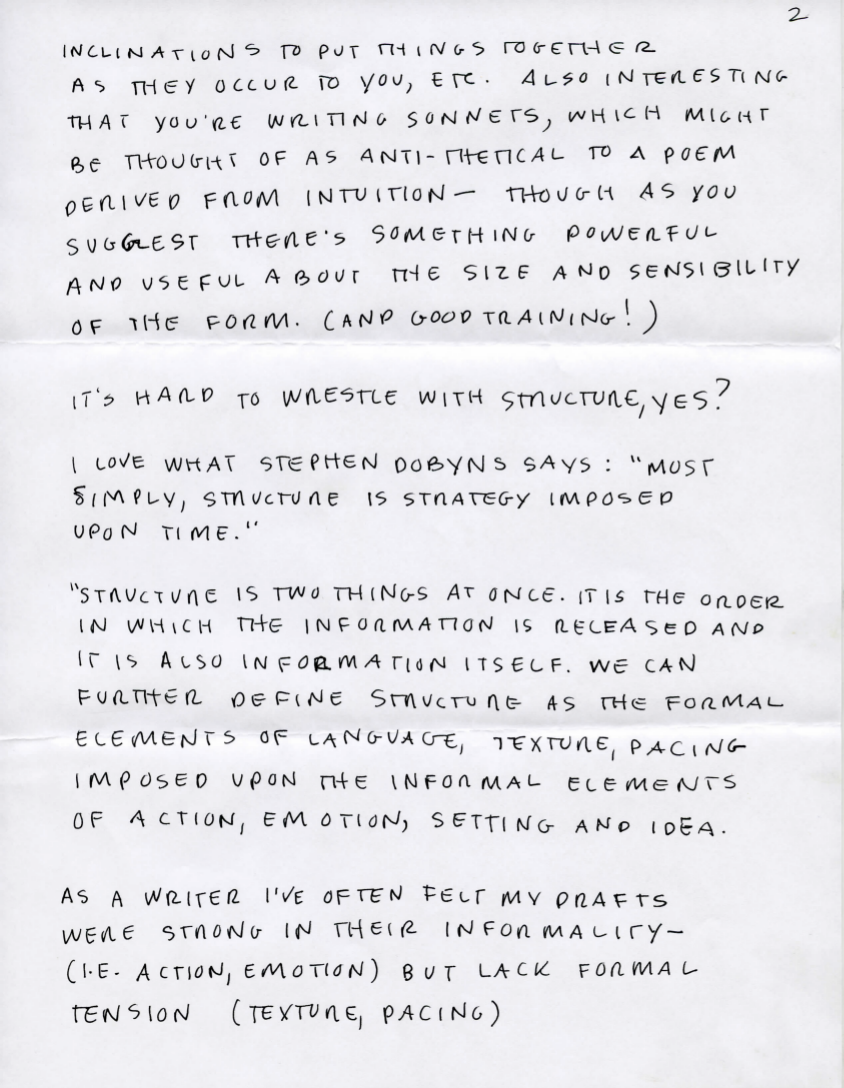 2
INCLINATIONS TO PUT THINGS TOGETHER
AS THEY OCCUR TO YOU, ETC. ALSO INTERESTING
THAT YOU'RE WRITING SONNETS, WHICH MIGHT
BE THOUGHT OF AS ANTI-THETICAL TO A POEM
DERIVED FROM INTUITION— THOUGH AS YOU
SUGGEST THERE'S SOMETHING POWERFUL
AND USEFUL ABOUT THE SIZE AND SENSIBILITY
OF THE FORM. (AND GOOD TRAINING!)
IT'S HARD TO WRESTLE WITH STRUCTURE, YES?
I LOVE WHAT STEPHEN DOBYNS SAYS: "MOST
SIMPLY, STRUCTURE IS STRATEGY IMPOSED
UPON TIME."
"STRUCTURE IS TWO THINGS AT ONCE. IT IS THE ORDER
IN WHICH THE INFORMATION IS RELEASED AND
IT IS ALSO INFORMATION ITSELF. WE CAN
FURTHER DEFINE STRUCTURE AS THE FORMAL
ELEMENTS OF LANGUAGE, TEXTURE, PACING
IMPOSED UPON THE INFORMAL ELEMENTS
OF ACTION, EMOTION, SETTING AND IDEA.
AS A WRITER I'VE OFTEN FELT MY DRAFTS
WERE STRONG IN THEIR INFORMALITY—
(I.E. ACTION, EMOTION) BUT LACK FORMAL
TENSION (TEXTURE, PACING)